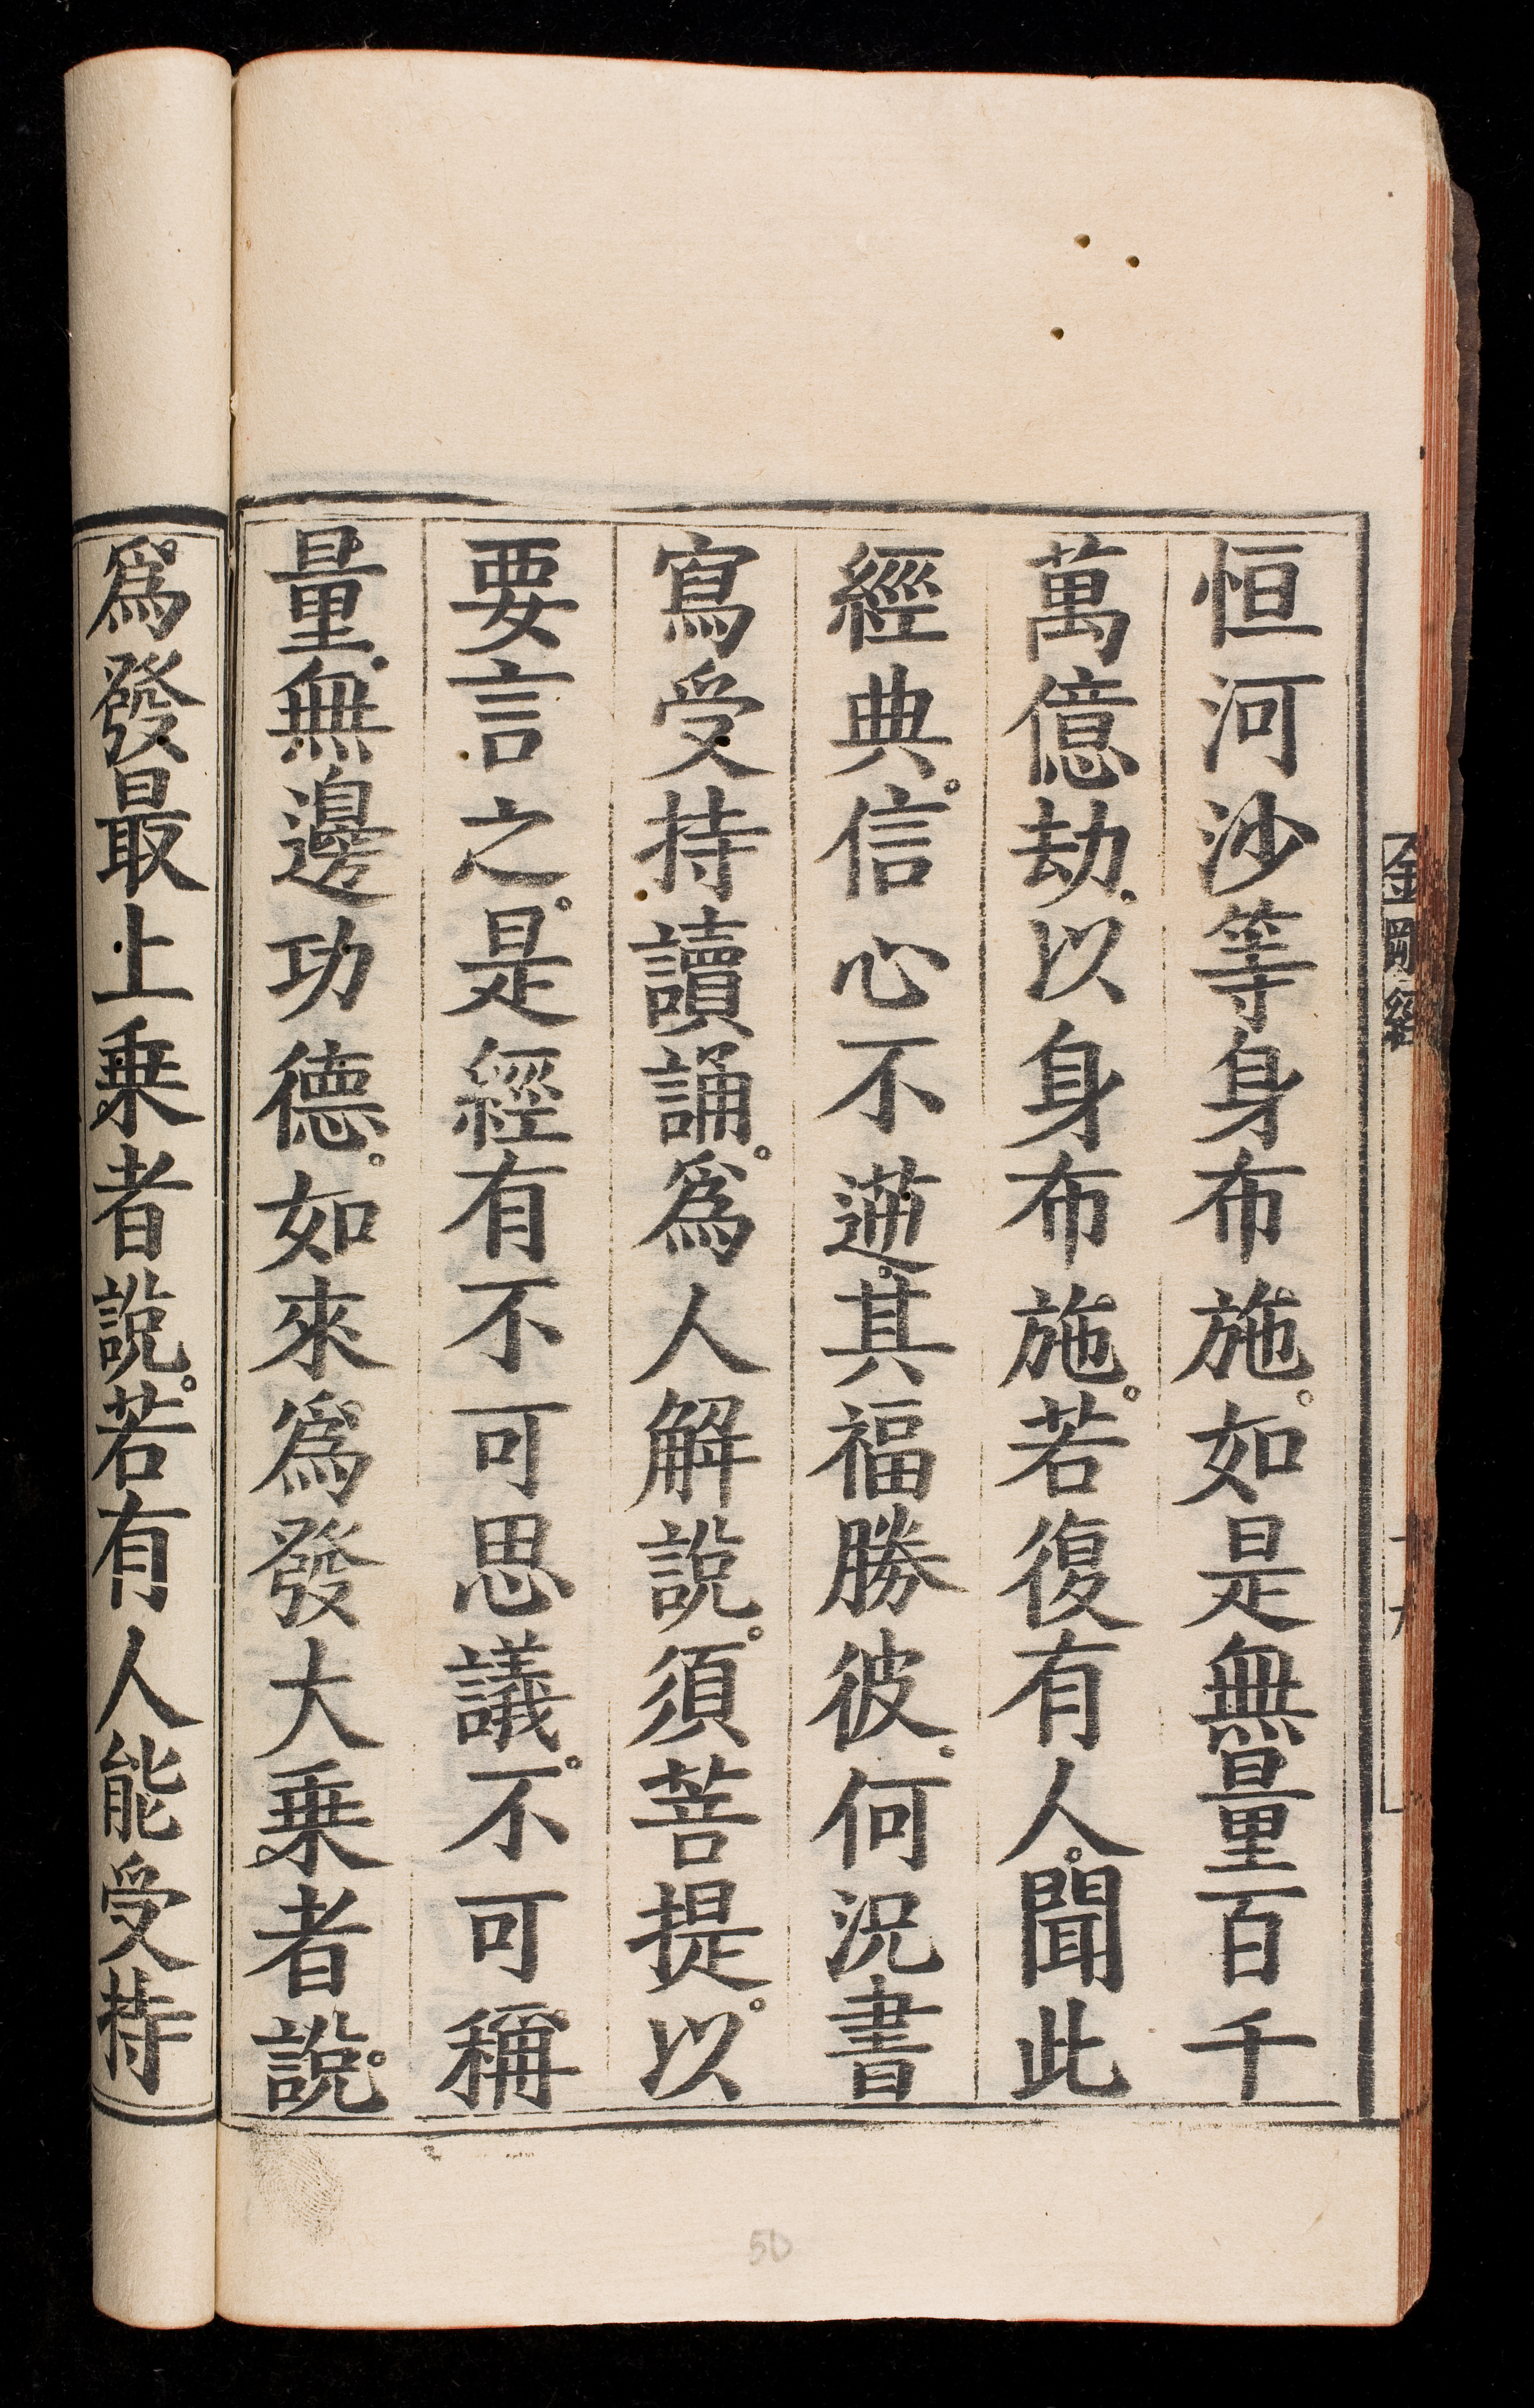 恒河沙等身布施。如是無量百千
萬億劫。以身布施。若復有人。聞此
經典。信心不逆。其福勝彼。何況書
寫受持讀誦。爲人解說。須菩提。以
要言之。是經有不可思議。不可稱
量。無邊功德。如來爲發大乗者說。
爲發最上乗者說。若有人能受持
金剛經
50